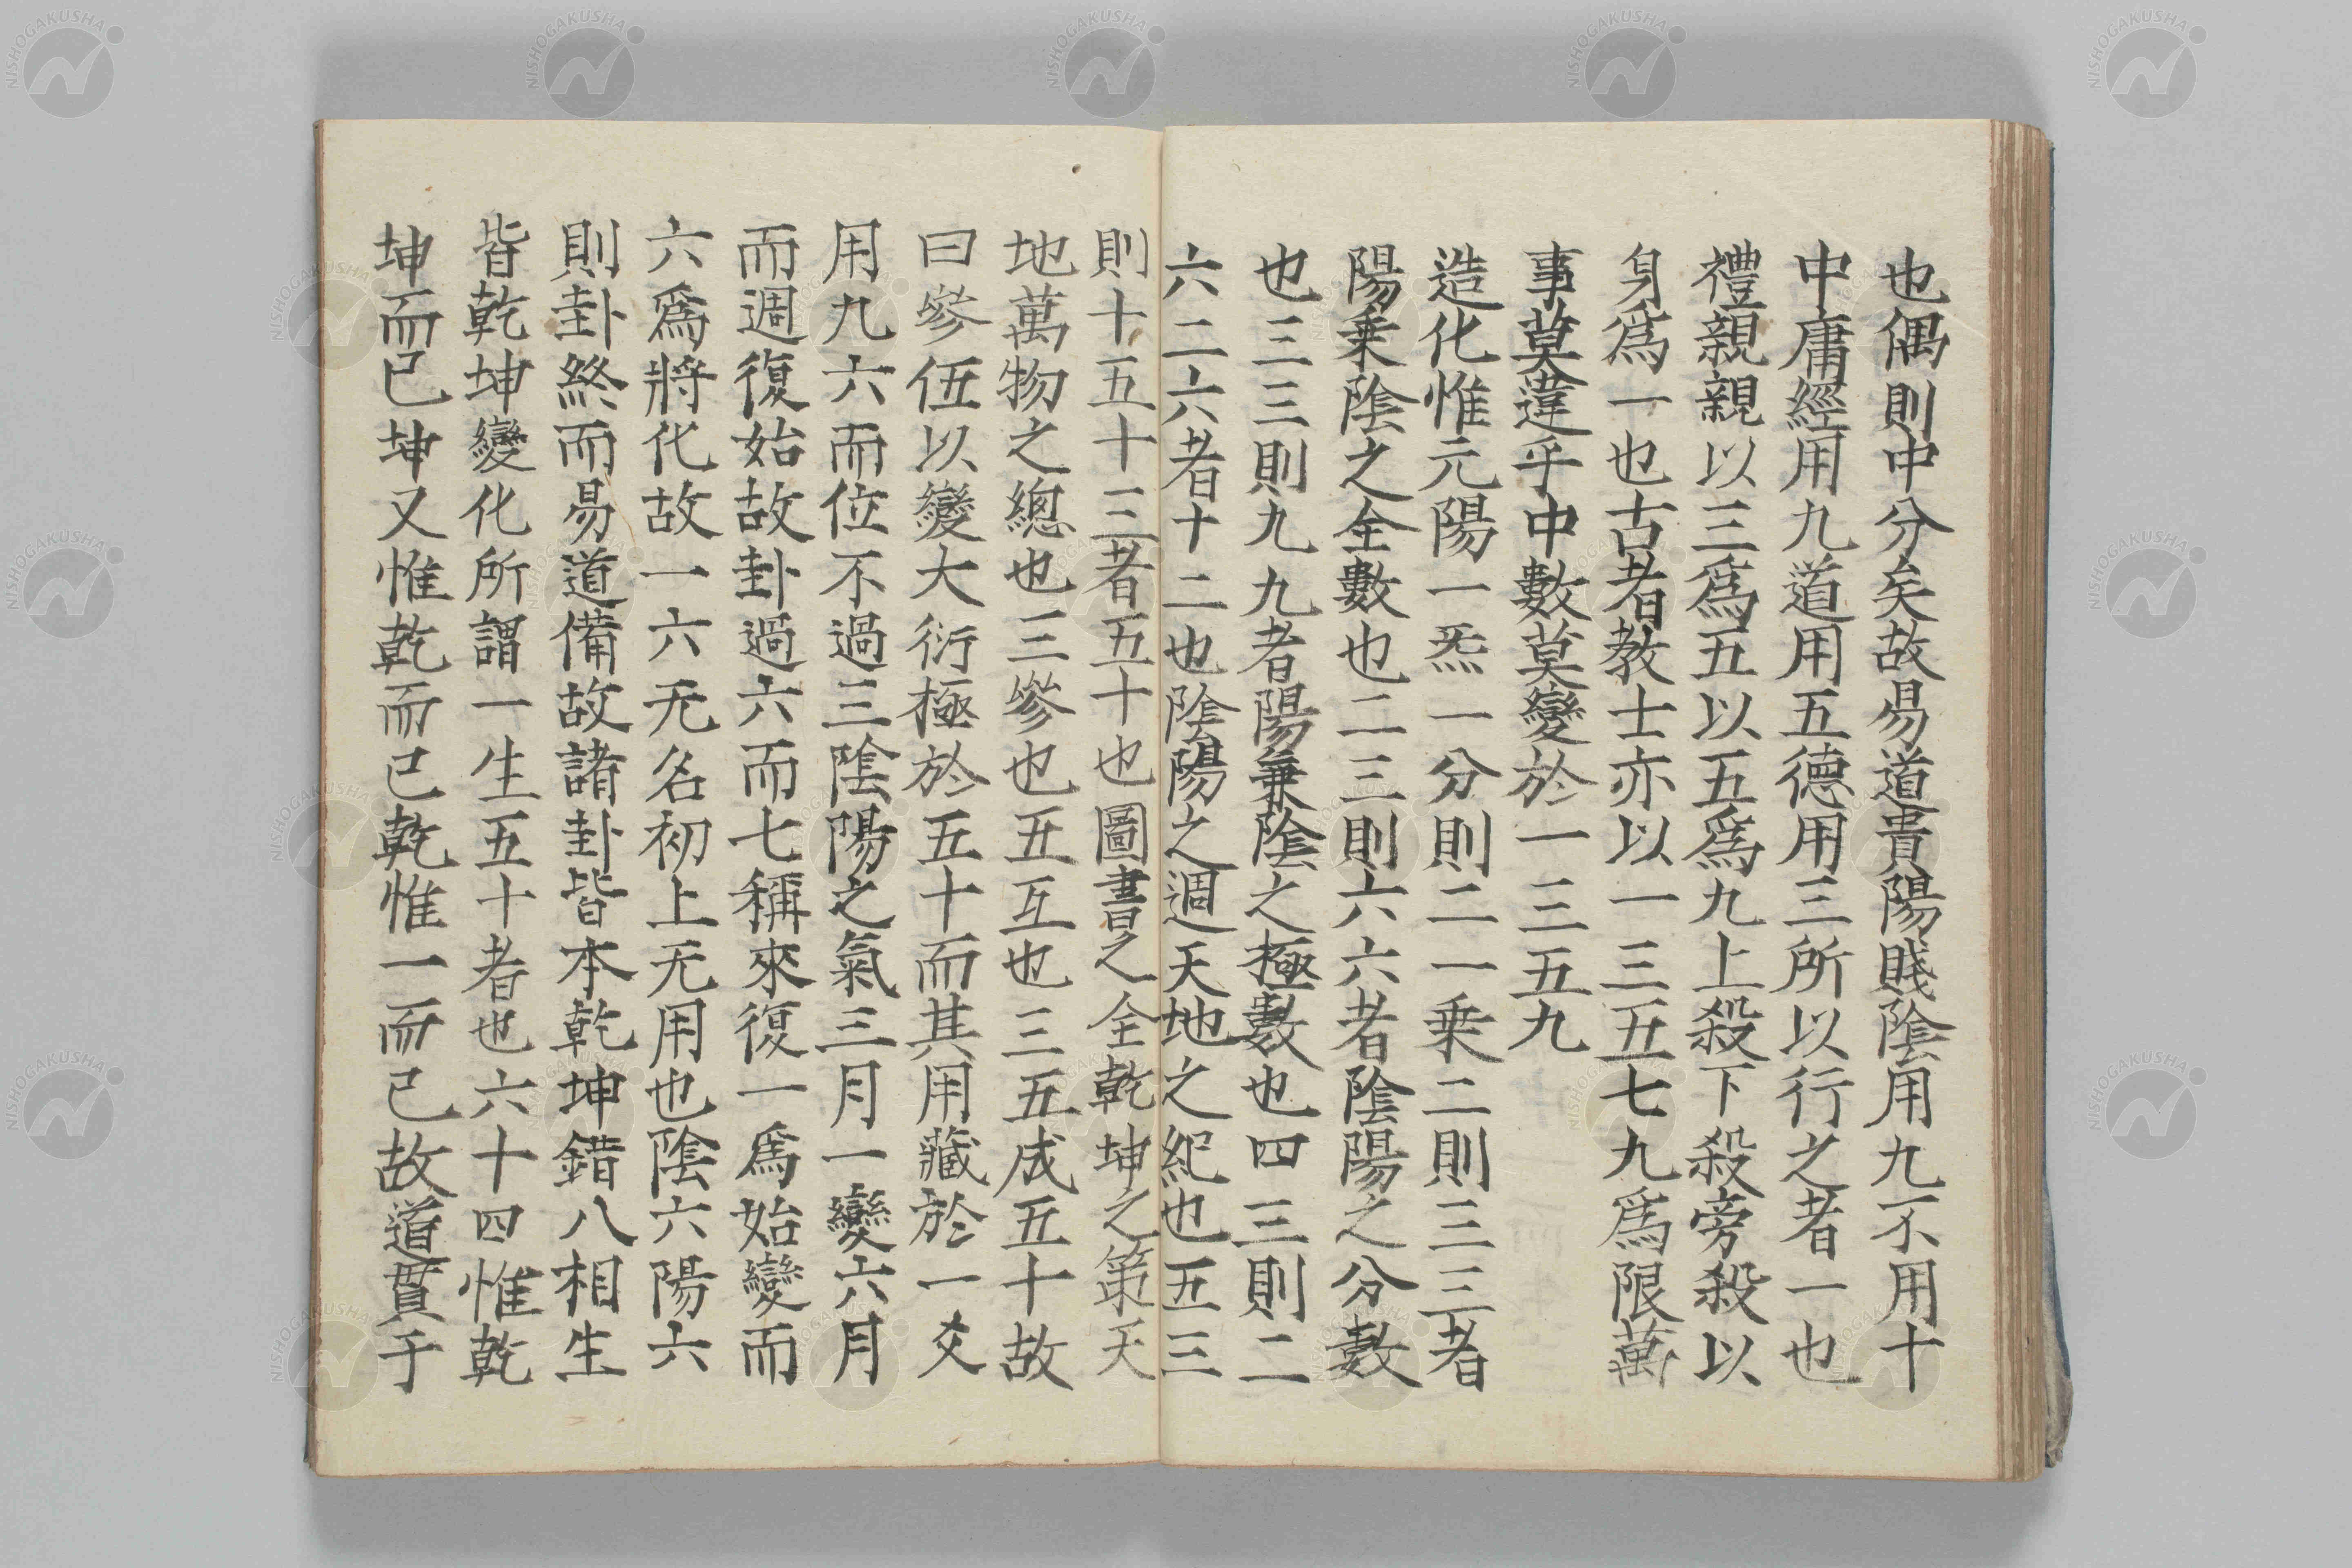 也偶則中分矣故易道貴陽賤陰用九不用十
中庸經用九道用五德用三所以行之者一也
禮親親以三爲五以五爲九上殺下殺旁殺以
身爲一也古者教士亦以一三五七九爲限萬
事莫違乎中數莫變於一三五九
造化惟元陽一炁一分則二一乗二則三三者
陽乗陰之全數也二三則六六者陰陽之分數
也三三則九九者陽兼陰之極數也四三則二
六二六者十二也陰陽之週天地之紀也五三
則十五十三者五十也圖書之全乾坤之策天
地萬物之總也三參也五互也三五成五十故
曰參伍以變大衍極於五十而其用藏於一爻
用九六而位不過三陰陽之氣三月一變六月
而週復始故卦過六而七稱來復一爲始變而
六爲將化故一六无名初上无用也陰六陽六
則卦終而易道備故諸卦皆本乾坤錯八相生
皆乾坤變化所謂一生五十者也六十四惟乾
坤而已坤又惟乾而已乾惟一而已故道貫于
NISHOGAKUSHA
NISHOGAKUSHA
NISHOGAKUSHA
NISHOGAKUSHA
NISHOGAKUSHA
NISHOGAKUSHA
NISHOGAKUSHA
NISHOGAKUSHA
NISHOGAKUSHA